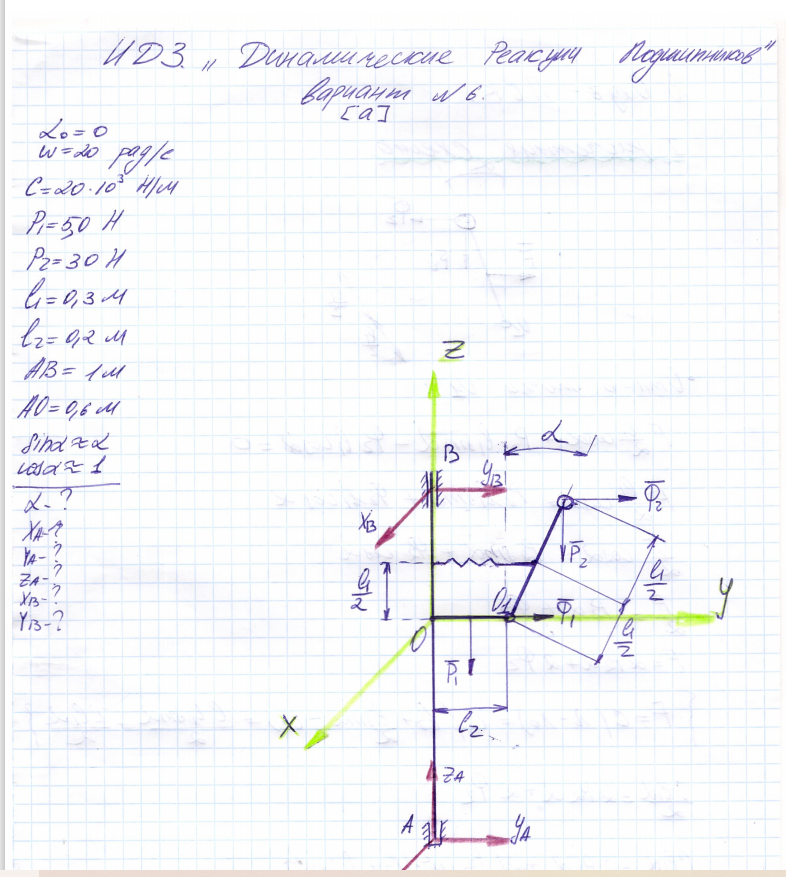 ИДЗ „Динамические Реакции Подшипников“
Вариант №6.
[а]
α₀=0
ω=20 рад/с
C=20·10³ Н/м
P₁=5,0 Н
P₂=30 Н
l₁=0,3 м
l₂=0,2 м
AB=1м
AO=0,6 м
sinα≈α
cosα≈1
α-?
XA-?
YA-?
ZA-?
XB-?
YB-?
Z
α
B
YB
XB
Φ̅₂
P̅₂
l₁/2
l₁/2
O₁
Φ̅₁
Y
O
l₁/2
P̅₁
X
l₂
ZA
A
YA